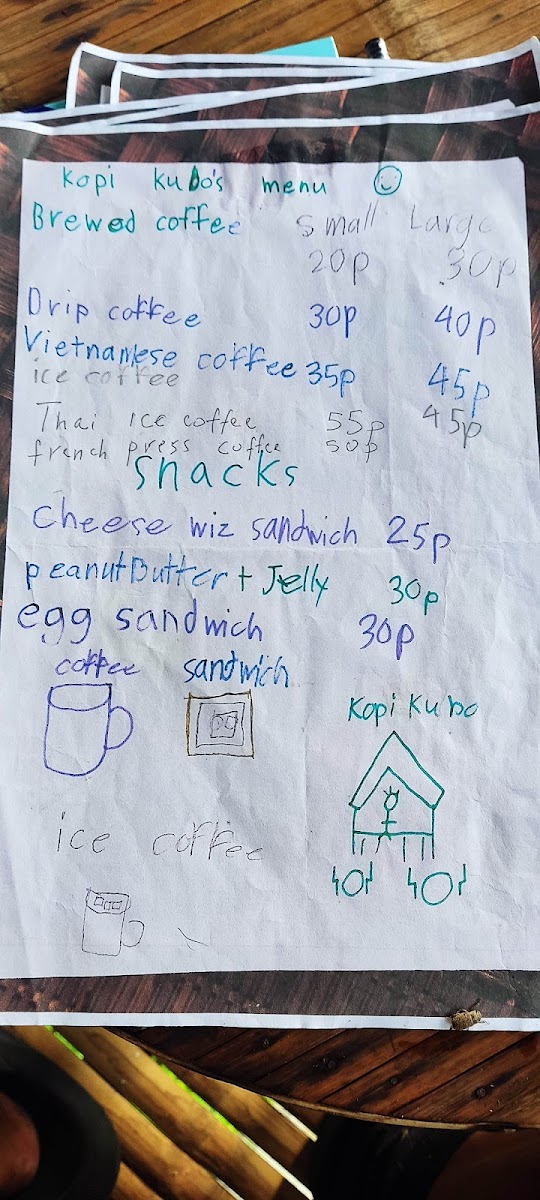 Kopi Kubo's menu
Brewed coffee Small Large
20p 30p
Drip coffee 30p 40p
Vietnamese coffee 35p 45p
ice coffee
Thai ice coffee 55p 45p
french press coffee 50p
snacks
cheese wiz sandwich 25p
peanutButter + Jelly 30p
egg sandwich 30p
coffee sandwich
Kopi Kubo
ice coffee